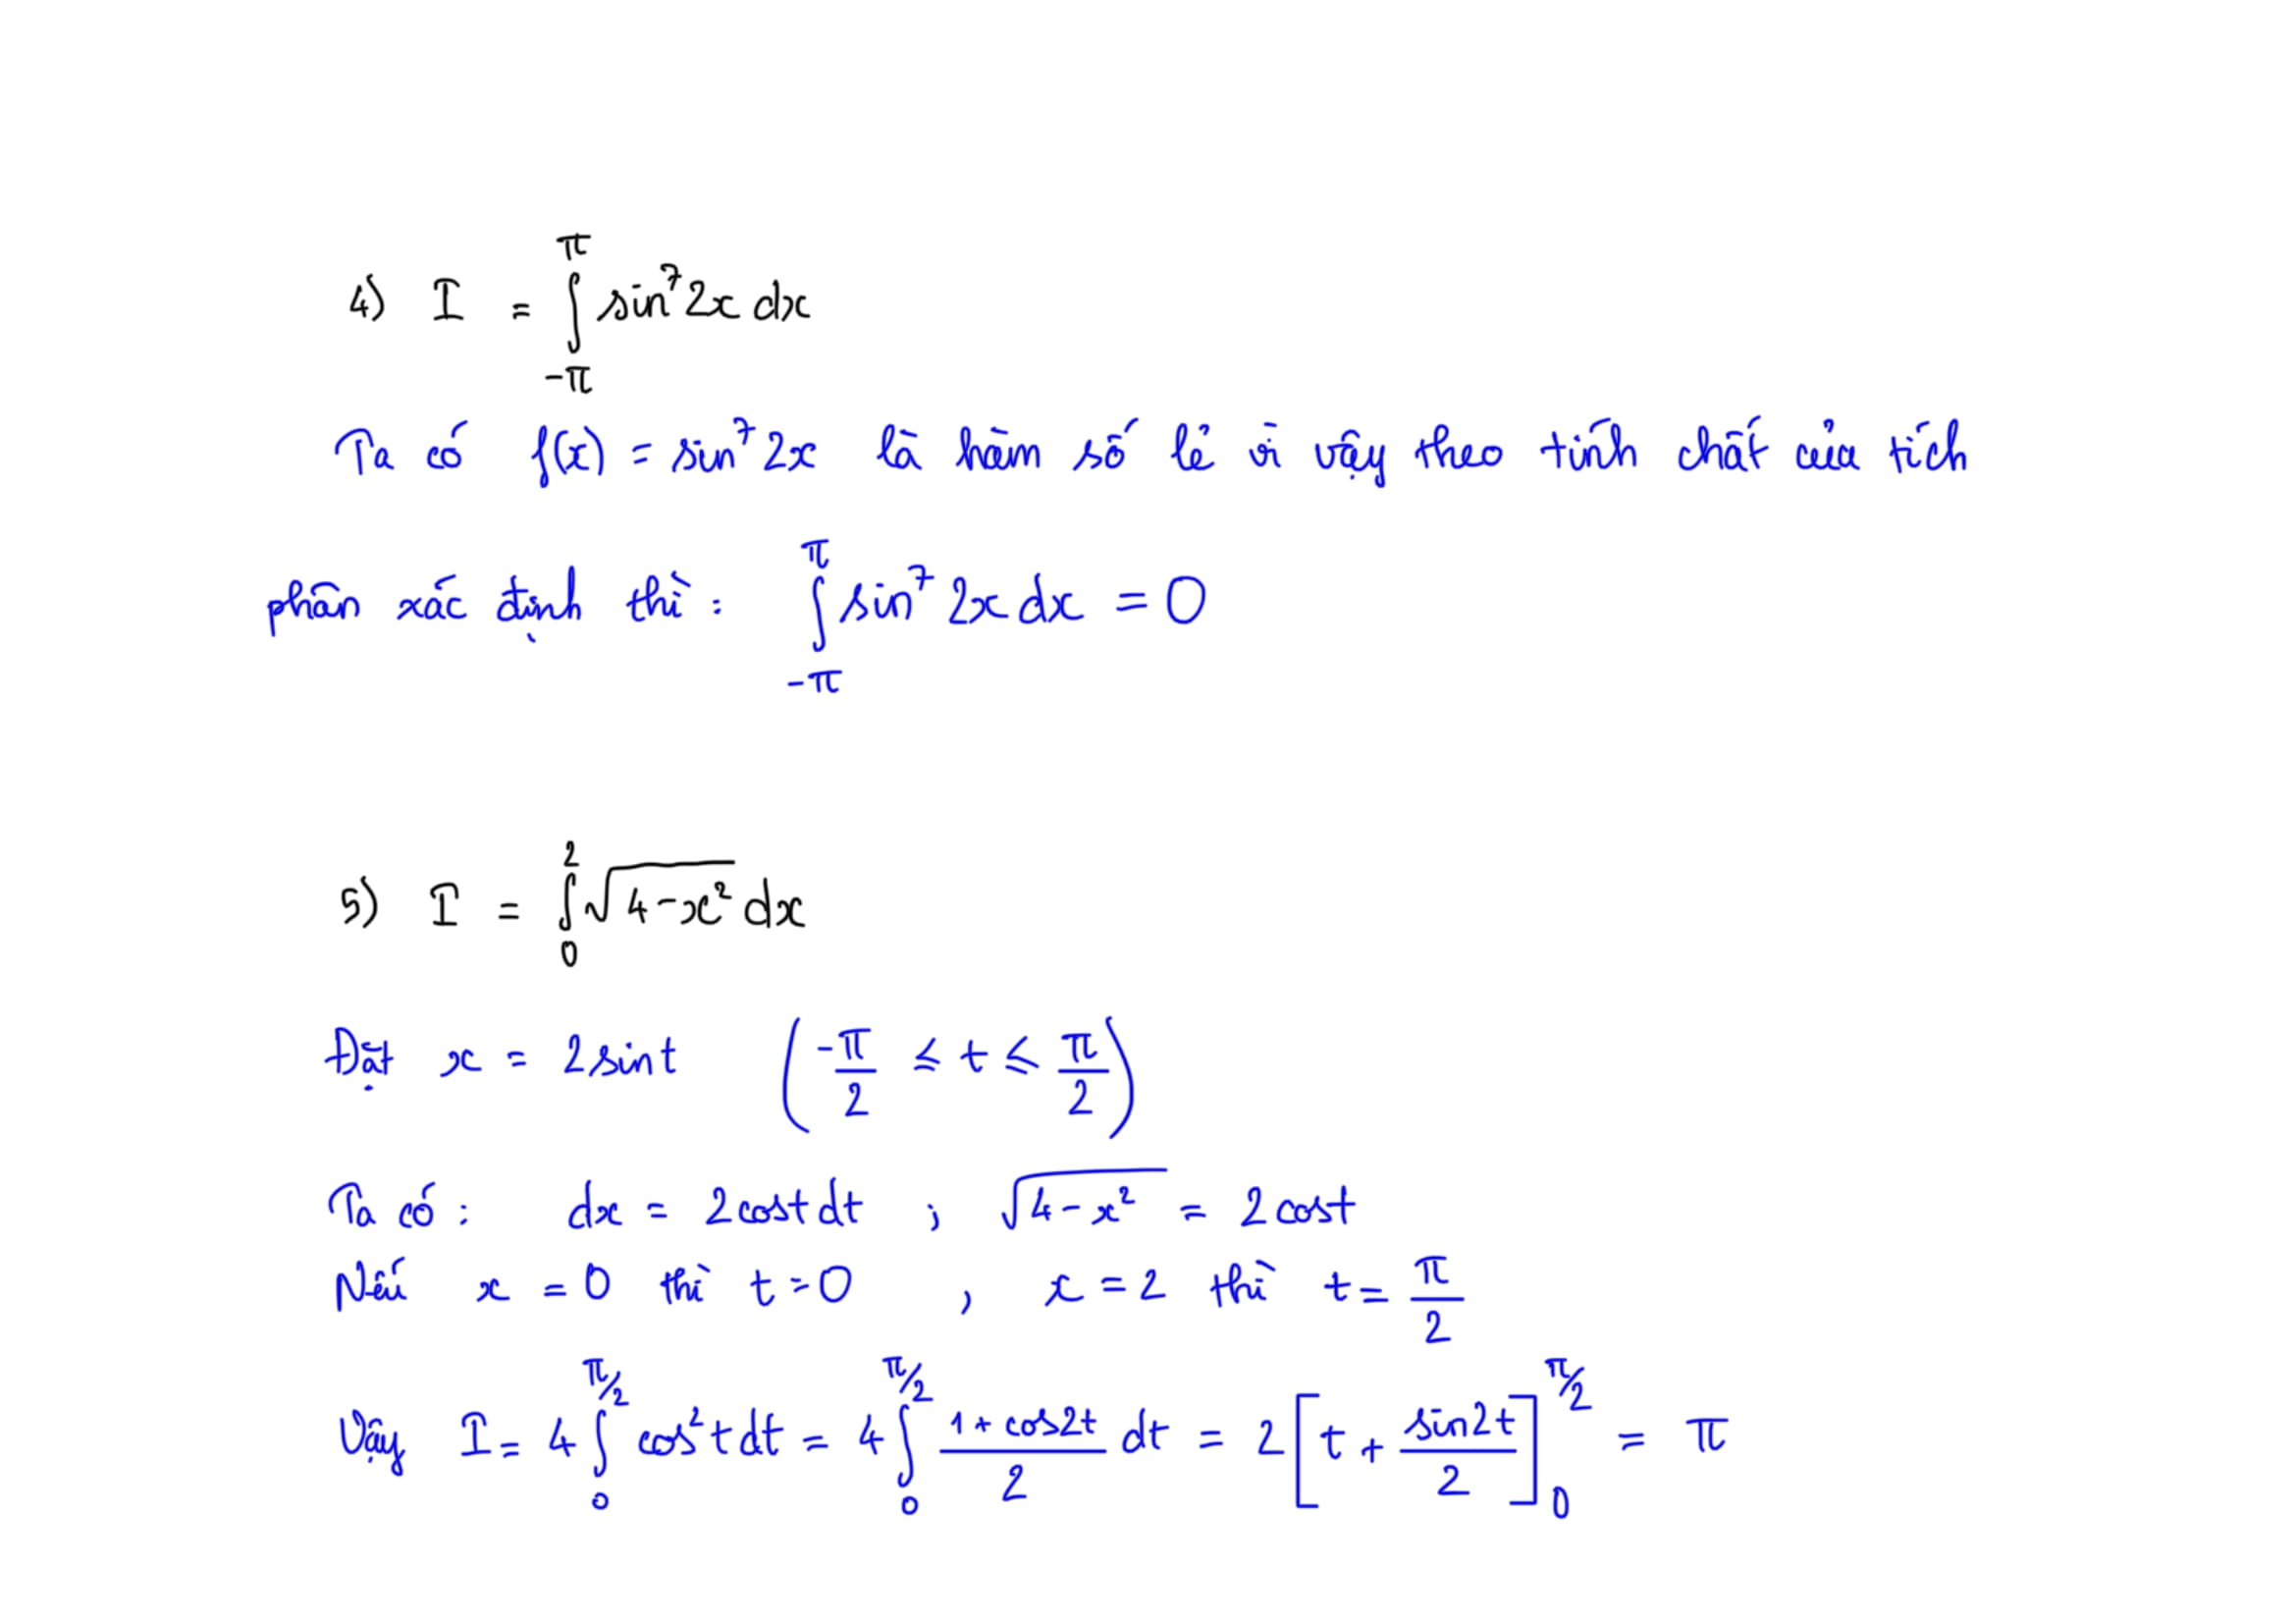 4) I = ∫_{-π}^{π} sin⁷2x dx
Ta có f(x) = sin⁷2x là hàm số lẻ vì vậy theo tính chất của tích
phân xác định thì: ∫_{-π}^{π} sin⁷2x dx = 0
5) I = ∫_{0}^{2} √(4-x²) dx
Đặt x = 2sint (-π/2 ≤ t ≤ π/2)
Ta có: dx = 2cost dt ; √(4-x²) = 2cost
Nếu x = 0 thì t = 0 , x = 2 thì t = π/2
Vậy I = 4∫_{0}^{π/2} cos²t dt = 4∫_{0}^{π/2} (1 + cos2t)/2 dt = 2[t + sin2t/2]_{0}^{π/2} = π